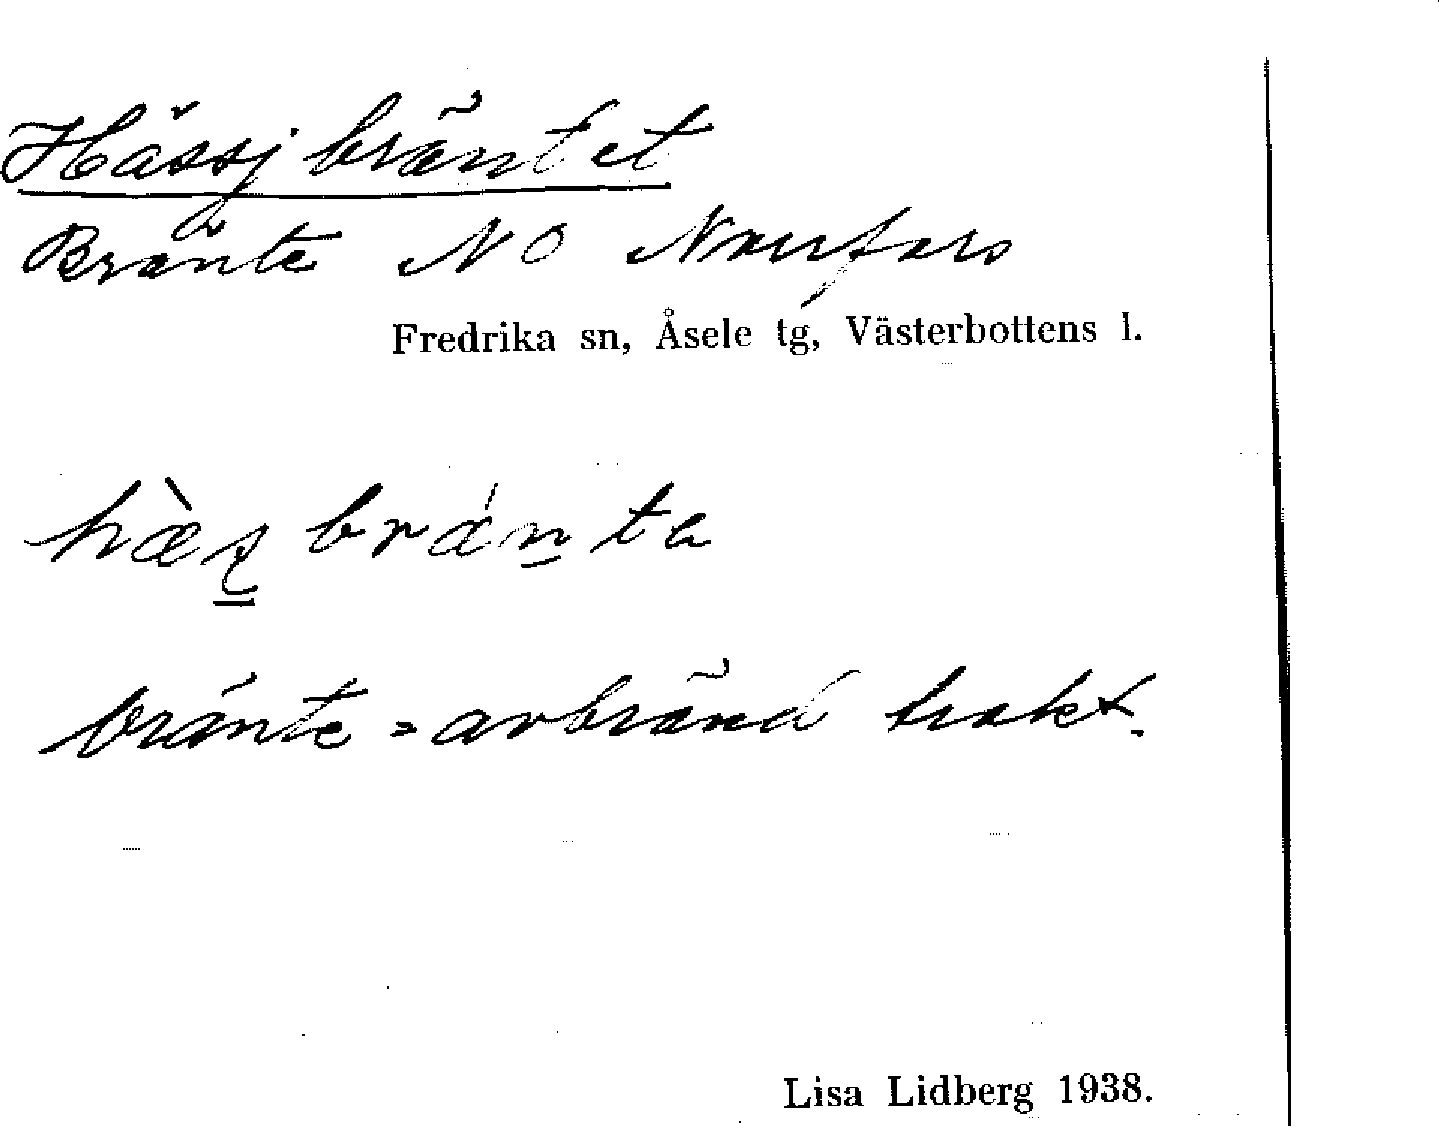 Hässjbräntet
Bränte NO Norrfors
Fredrika sn, Åsele tg, Västerbottens l.
bränte = avbränd trakt.
Lisa Lidberg 1938.